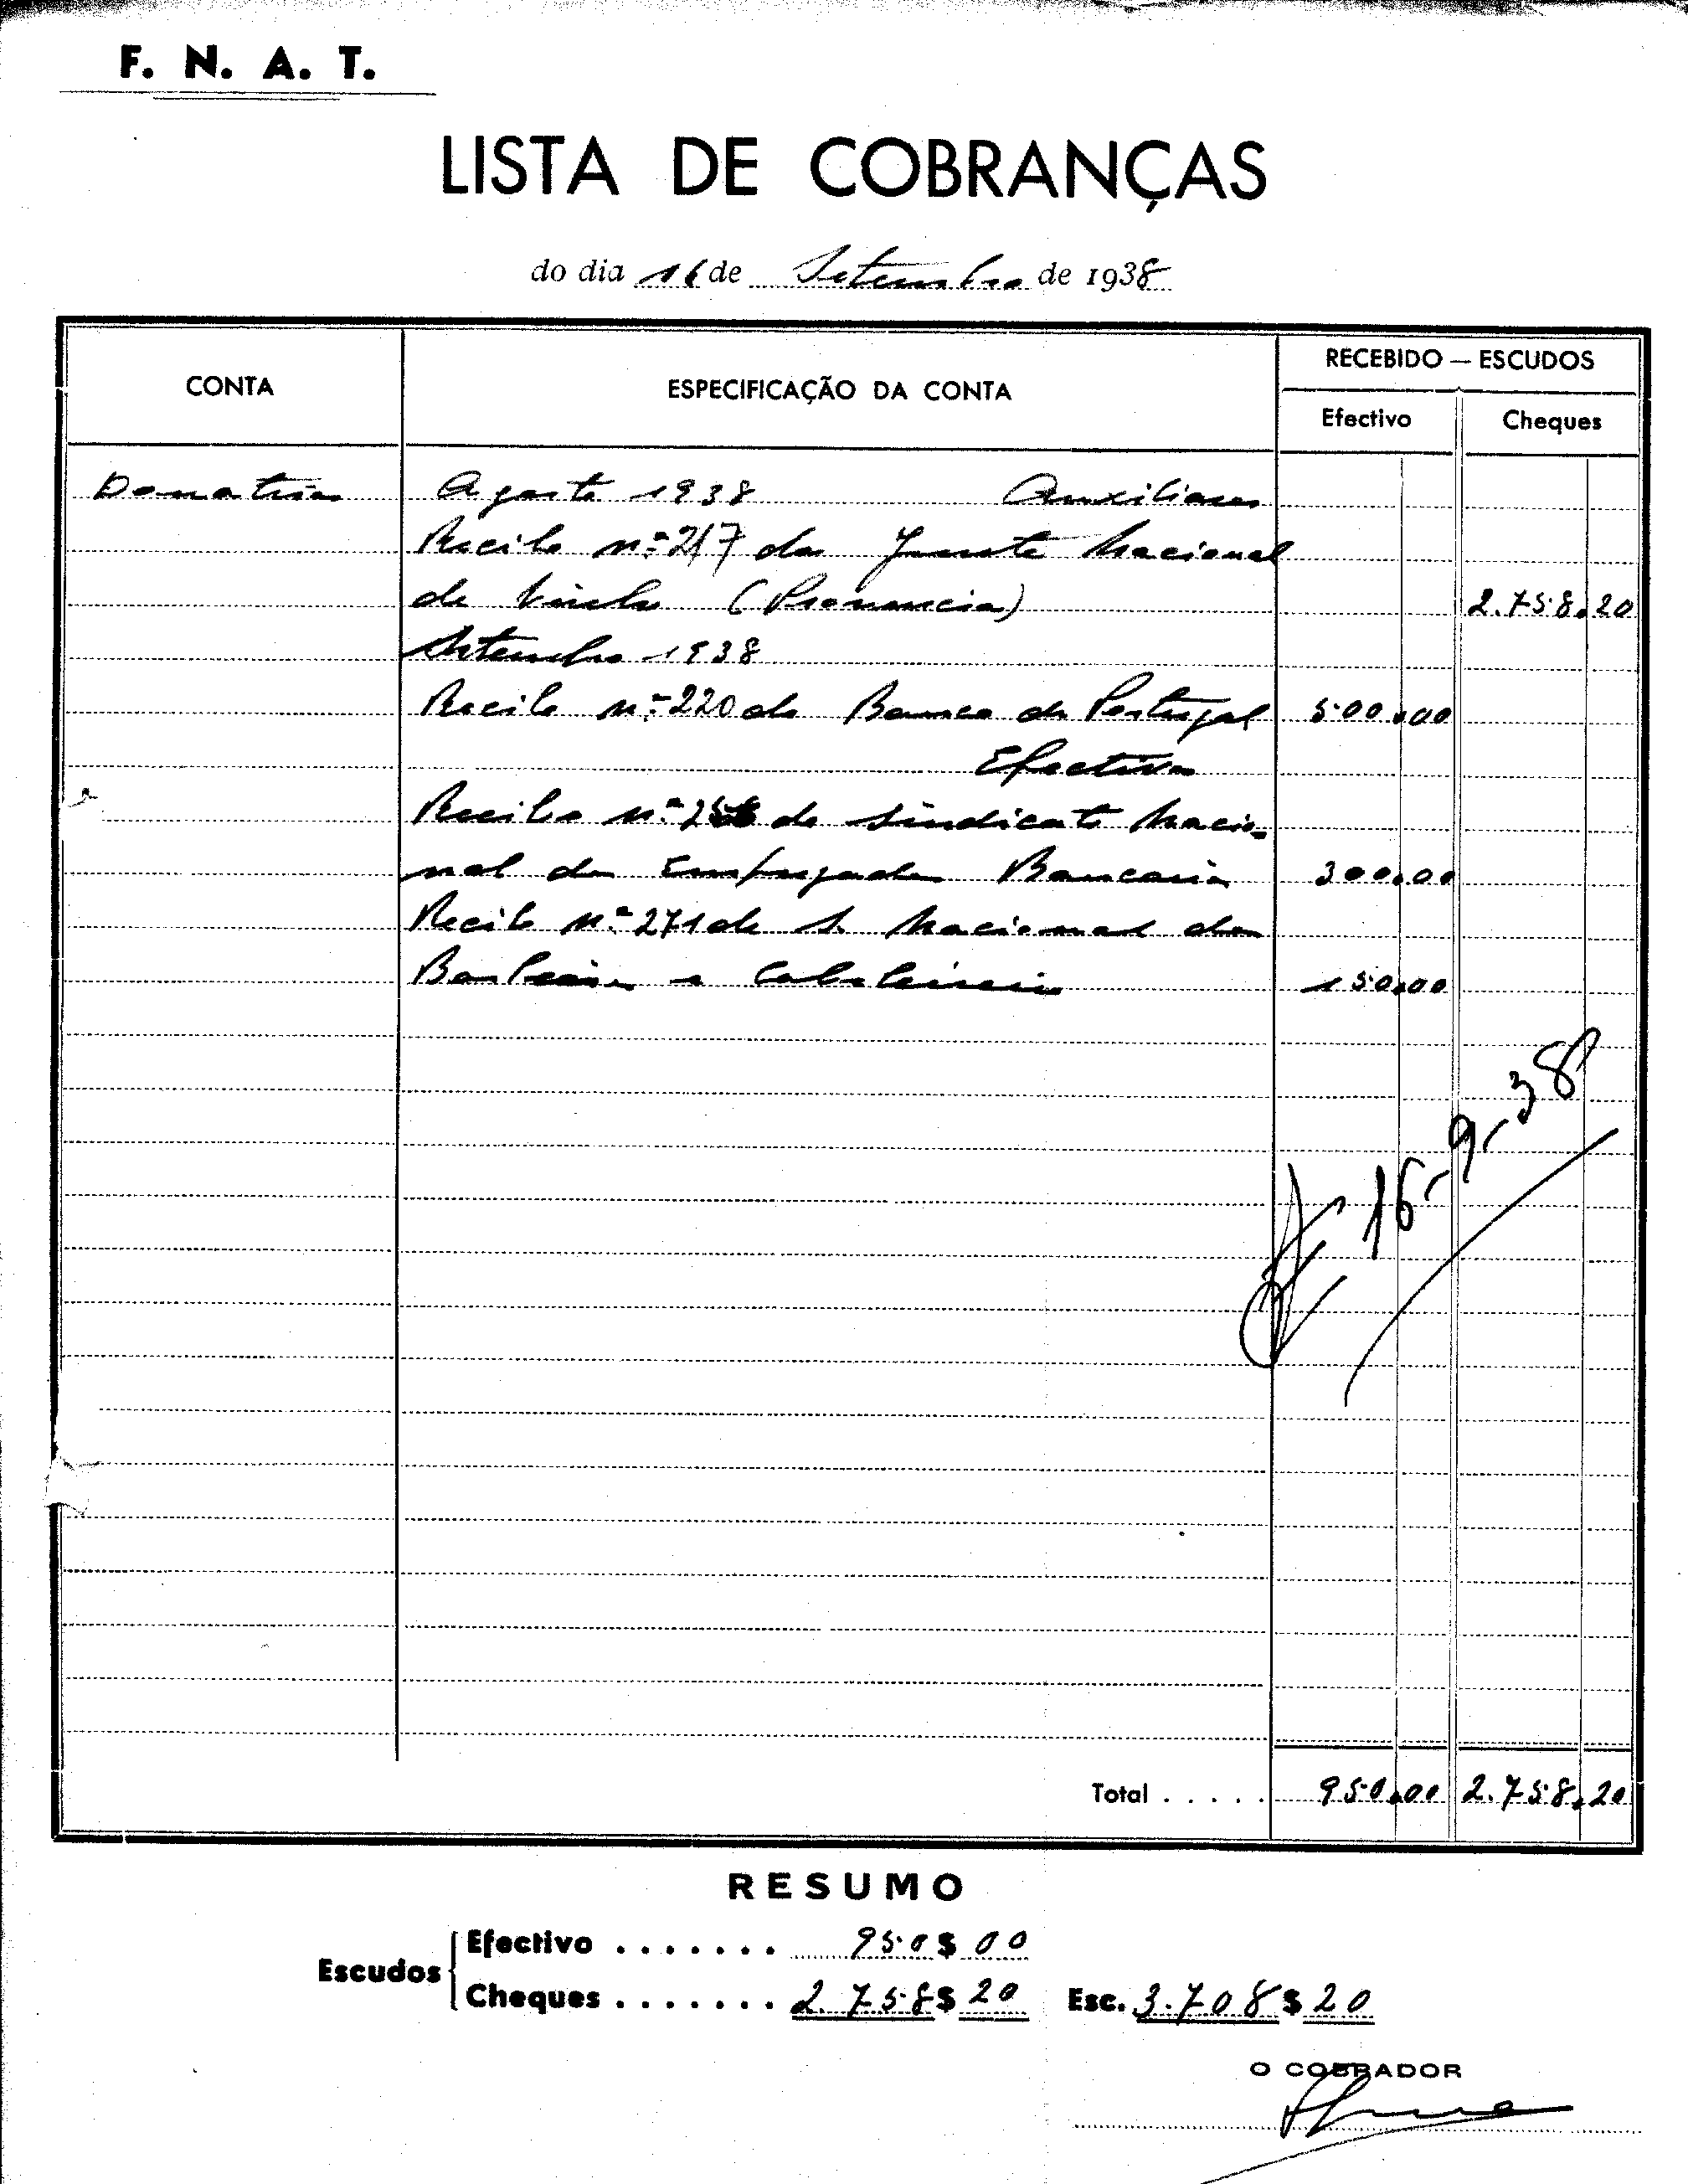 F. N. A. T.
LISTA DE COBRANÇAS
do dia 16 de Setembro de 1938
CONTA
ESPECIFICAÇÃO DA CONTA
RECEBIDO — ESCUDOS
Efectivo
Cheques
Donativos Agosto 1938 Auxiliares
Recibo n.º 217 da Junta Nacional
de Vinho (Pronuncia) 2.758.20
Setembro 1938
Recibo n.º 220 do Banco de Portugal 500.00
Efectivos
Recibo n.º do Sindicato Nacio-
nal dos Empregados Bancarios 300.00
Recibo n.º 271 do S. Nacional dos
Barbeiros e Cabeleireiros 150.00
16-9-38
Total . . . . . 950.00 2.758.20
RESUMO
Escudos
Efectivo . . . . . . . 950$00
Cheques . . . . . . . 2.758$20 Esc. 3.708$20
O COBRADOR